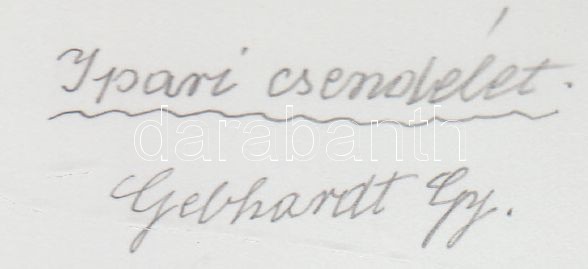 Ipari csendélet.
darabanth
Gebhardt Gy.